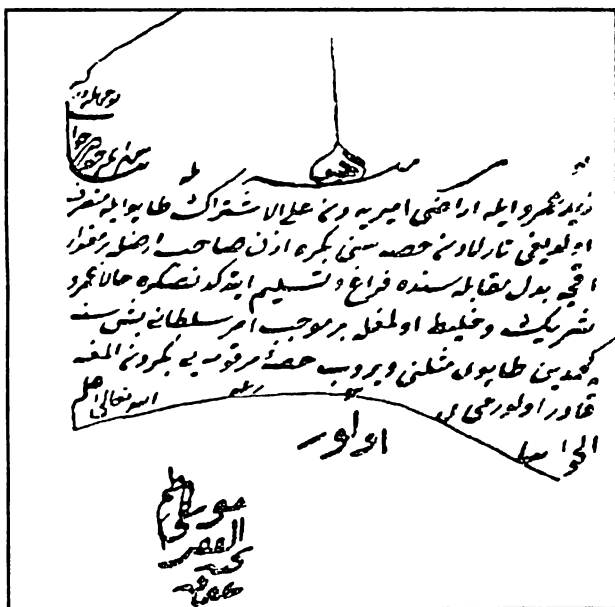 زيد عمرو ايله اراضئ اميريه دن على الاشتراك طاپو ايله متصرف
اولديغى تارلادن حصه سنى بكره اذن صاحب ارضله بر مقدار
اقچه بدل مقابله سنده فراغ و تسليم ايتدكدنصكره حالا عمرو
شريك و خليط اولمغله بر موجب امر سلطانى بش سنه
كچمدين طاپوى مثلنى ويروب حصهٔ مرقومه يى بكردن المغه
قادر اولورمى
الله تعالى اعلم
الجواب
اولور
الفقير